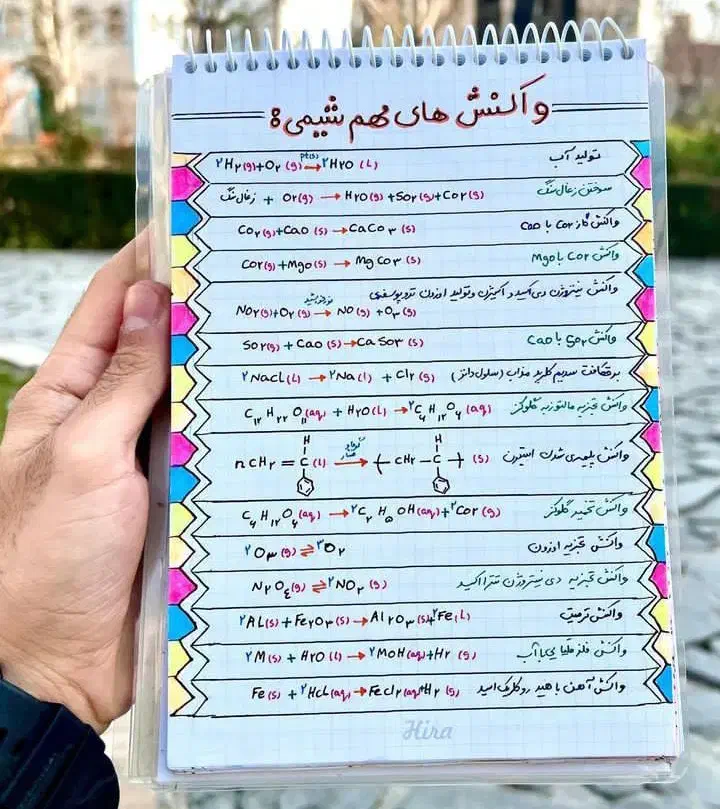 واکنش های مهم شیمی:
تولید آب ۲H۲(g)+O۲(g) →pt(s) ۲H۲O (L)
سوختن زغال سنگ زغال سنگ + O۲(g) → H۲O(g)+SO۲(g)+CO۲(g)
واکنش گاز CO۲ با CaO CO۲(g)+CaO (s) → CaCO۳ (s)
واکنش CO۲ با MgO CO۲(g)+MgO(s) → MgCO۳ (s)
واکنش نیتروژن دی اکسید و اکسیژن و تولید اوزون تروپوسفری
NO۲(g)+O۲(g) →نور خورشید NO(g) +O۳(g)
واکنش SO۲ با CaO SO۲(g) + CaO (s) → CaSO۳ (s)
برقکافت سدیم کلرید مذاب (سلول دانز) ۲NaCl(L) → ۲Na(l) + Cl۲(g)
واکنش تجزیه مالتوز به گلوکز C۱۲H۲۲O۱۱(aq) + H۲O(L) → ۲C۶H۱۲O۶(aq)
واکنش پلیمری شدن استیرن nCH۲ = C (l) →گرما فشار ( CH۲ – C ) (s)
H H
واکنش تخمیر گلوکز C۶H۱۲O۶(aq) → ۲C۲H۵OH(aq)+۲CO۲(g)
واکنش تجزیه اوزون ۲O۳(g) ⇌ ۳O۲
واکنش تجزیه دی نیتروژن تترا اکسید N۲O۴(g) ⇌ ۲NO۲(g)
واکنش ترمیت ۲AL(s)+Fe۲O۳(s) → Al۲O۳(s)+۲Fe(L)
واکنش فلز قلیایی با آب ۲M(s) + H۲O (l) → ۲MOH(aq)+H۲ (g)
واکنش آهن با هیدروکلریک اسید Fe(s) + ۲HCL(aq) → FeCl۲(aq)+H۲ (g)
Hira